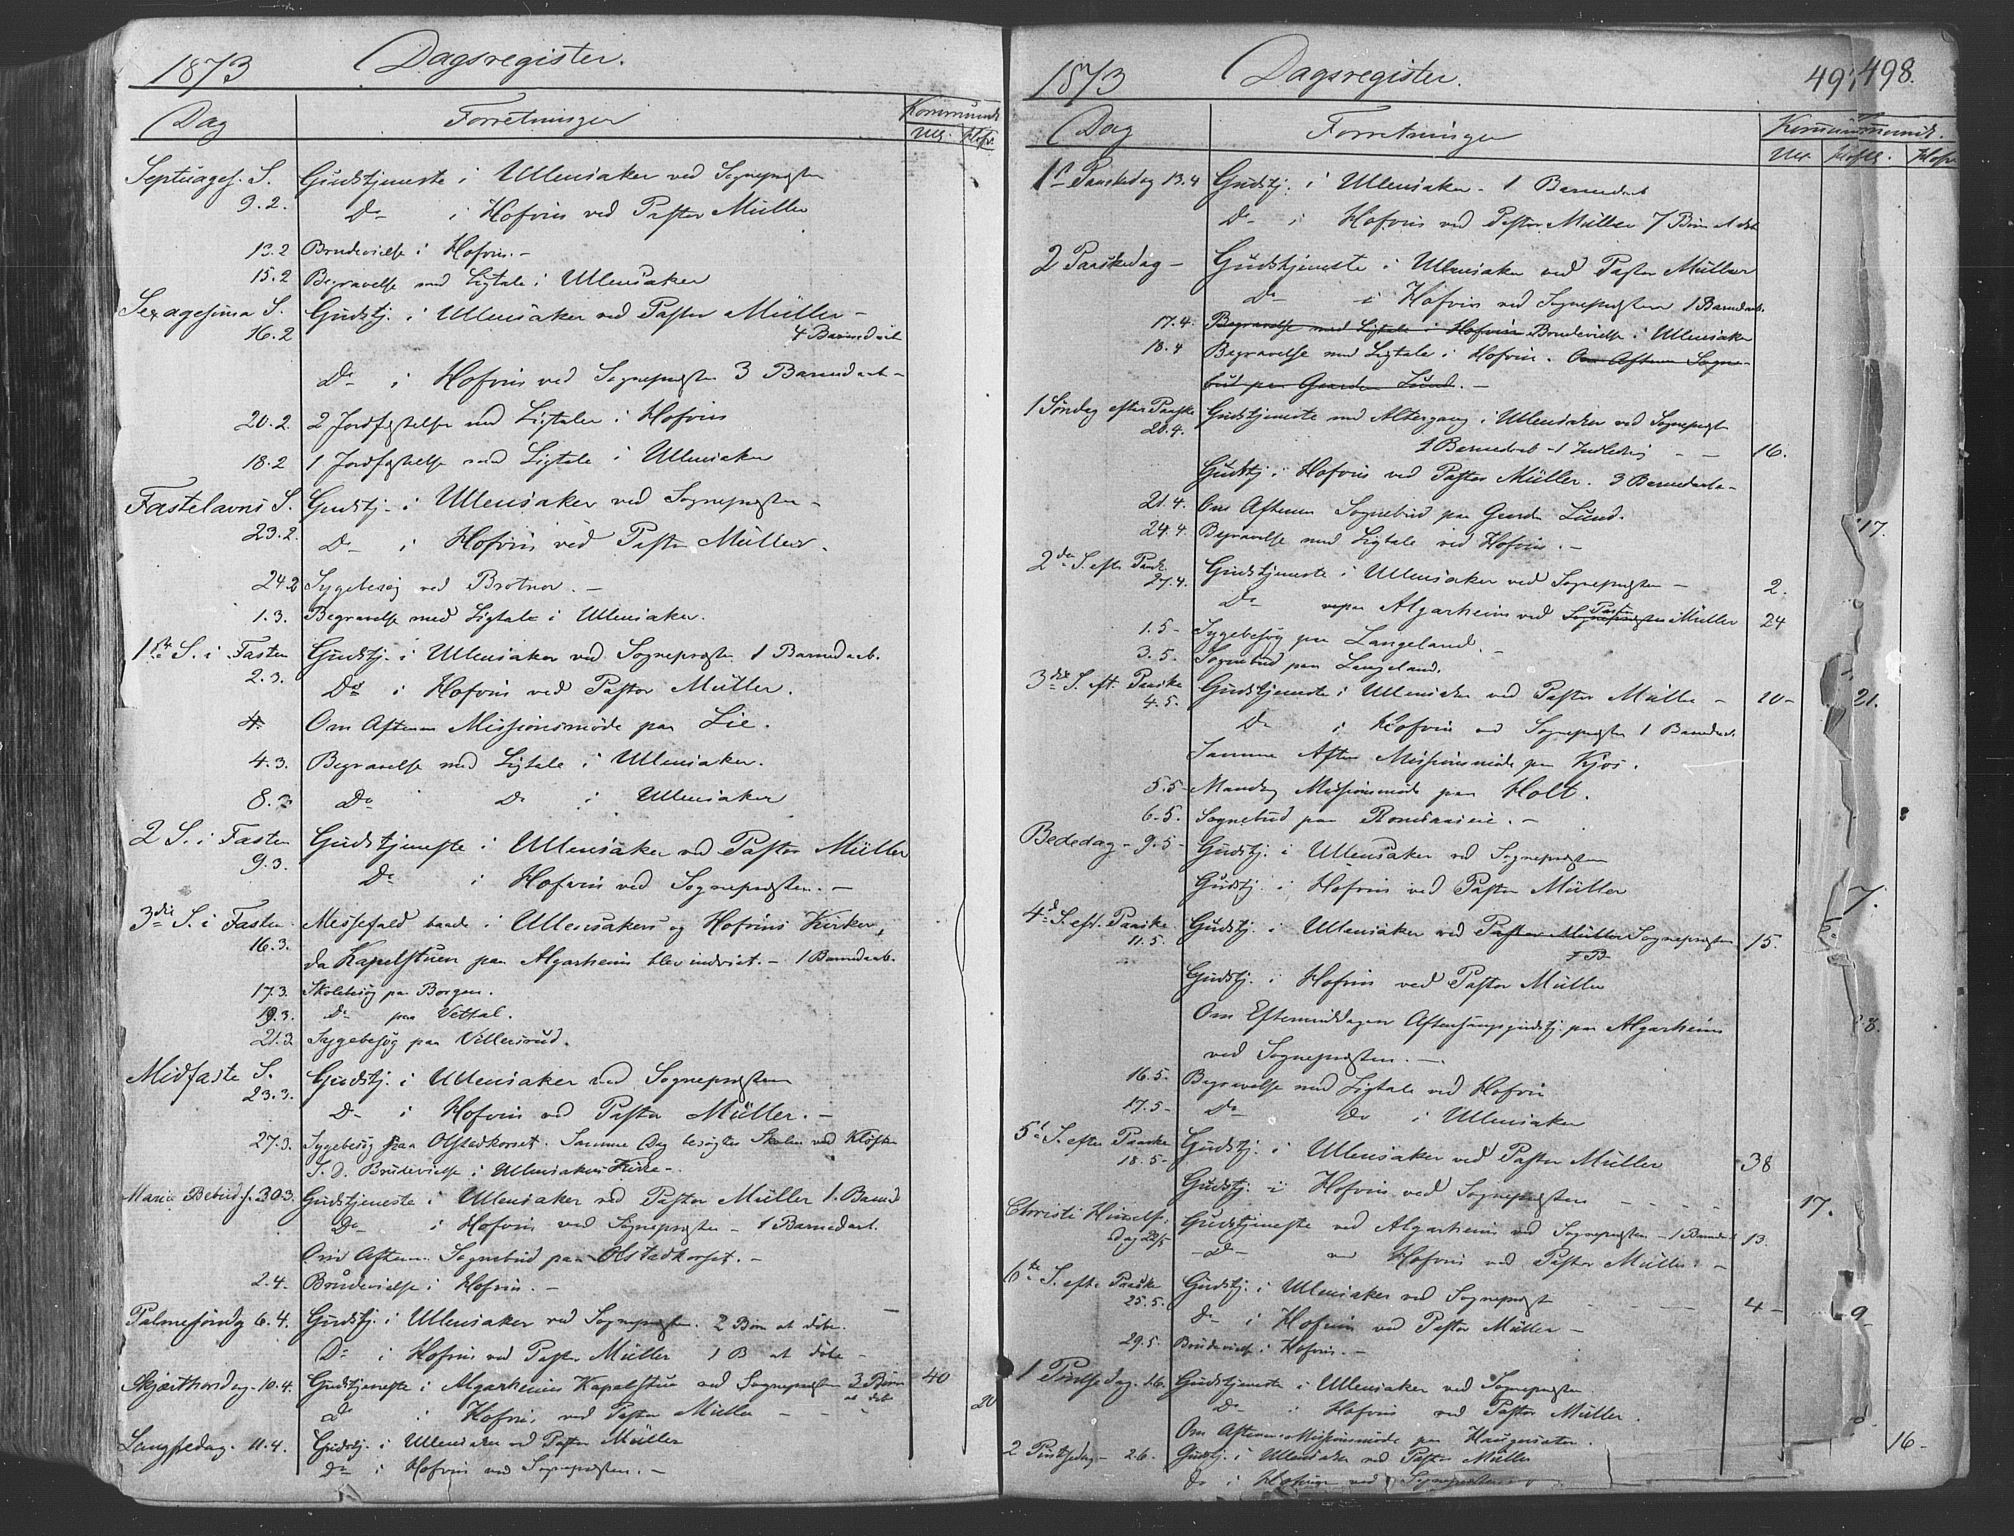 1873 Dagsregister.
Dag Forretninger Kommunik.
Ull. Hofv.
Septuages. S. Gudstjeneste i Ullensaker ved Sognepræsten
9.2. Do i Hofvin ved Pastor Müller
13.2 Brudevielse i Hofvin.-
15.2 Begravelse med Ligtale i Ullensaker
Sexagesima S. Gudstj. i Ullensaker ved Pastor Müller -
16.2 4 Barnedaab
Do i Hofvin ved Sognepræsten 3 Barnedaab -
20.2. 2 Jordfæstelser med Ligtaler i Hofvin
18.2 1 Jordfæstelse med Ligtale i Ullensaker
Fastelavns S. Gudstj. i Ullensaker ved Sognepræsten -
23.2. Do i Hofvin ved Pastor Müller.
24.2 Sygebesøg ved Brotnov. -
1.3. Begravelse med Ligtale i Ullensaker.
1ste S. i Fasten Gudstj. i Ullensaker ved Sognepræsten 1 Barnedaab.
2.3. Do i Hofvin ved Pastor Müller.
4. Om Aftenen Missionsmøde paa Lie.
4.3. Begravelse med Ligtale i Ullensaker.
8.3 Do Do i Ullensaker
2 S. i Fasten Gudstjeneste i Ullensaker ved Pastor Müller
9.3. Do i Hofvin ved Sognepræsten. -
3die S. i Fasten Messefald baade i Ullensakers og Hofvins Kirker,
16.3. da Kapelstuen paa Algarheim blev indviet. - 1 Barnedaab.
17.3. Skolebesøg paa Borgen.
19.3. Do paa Vettal.
21.3 Sygebesøg paa Villersrud.
Midfaste S. Gudstj. i Ullensaker ved Sognepræsten
23.3. Do i Hofvin ved Pastor Müller. -
27.3. Sygebesøg paa Olstadkorset. Samme Dag besøgtes Skolen ved Kløften
S. D. Brudevielse i Ullensakers Kirke -.
Mariæ Bebud. 30.3. Gudstjeneste i Ullensaker ved Pastor Müller 1 Barned
Do i Hofvin ved Sognepræsten - 1 Barnedaab.
Om Aftenen Sognebud paa Olstadkorset. -
2.4. Brudevielse i Hofvin. -
Palmesøndg 6.4. Gudstj. i Ullensaker ved Sognepræsten. 2 Børn at døbe.
Do i Hofvin ved Pastor Müller 1 B at døbe -
Skjærthorsdag. 10.4. Gudstjeneste i Algarheims Kapelstue ved Sognepræsten 3 Børn at døbe 40
Do i Hofvin, ved Pastor Müller - 20
Langfredag. 11.4. Gudstj. i Ullensaker ved Pastor Müller
Do i Hofvin ved Sognepræsten. -
1873 Dagsregister. 49 498.
Dag Forretninger Kommunik.
Ull. Hofv.
1ste Paaskedag 13.4 Gudstj. i Ullensaker. 1 Barnedaab
Do i Hofvin ved Pastor Müller 7 Børn at døbe
2 Paaskedag - Gudstjeneste i Ullensaker ved Pastor Müller
Do i Hofvin ved Sognepræsten 1 Barnedaab.
17.4. Begravelse med Ligtale i Hofvin Brudevielse i Ullensaker
18.4 Begravelse med Ligtale i Hofvin. Om Aftenen Sogne-
bud paa Gaarden Lund. -
1 Søndag efter Paaske Gudstjeneste med Altergang i Ullensaker ved Sognepræst
20.4. 1 Barnedaab - 1 Indledn - - 16.
Gudstj. i Hofvin ved Pastor Müller. 3 Barnedaab -
21.4. Om Aftenen Sognebud paa Gaarden Lund. 17.
24.4 Begravelse med Ligtale ved Hofvin. -
2den S. efter Paask. Gudstjeneste i Ullensaker ved Sognepræsten -
27.4. 2.
Do Algarheim ved Sognepræsten Pastor Müller 24
1.5 - Sygebesøg paa Langeland. -
3.5. Sognebud paa Langeland.
3die S. eft. Paaske Gudstjeneste i Ullensaker ved Pastor Müller - 10 - 21.
4.5. Do i Hofvin ved Sognepræsten 1 Barnedaab.
Samme Aften Missionsmøde paa Kjos.
5.5 - Mandag Missionsmøde paa Holt.
6.5. Sognebud paa Romsaaseie. -
Bededag - 9.5 - Gudstj. i Ullensaker ved Sognepræsten
Gudstj. i Hofvin ved Pastor Müller 7.
4d S. eft. Paaske Gudstj. i Ullensaker ved Pastor Müller Sognepræsten 15.
11.5. B
Gudstj. i Hofvin ved Pastor Müller
Om Eftermiddagen Aftensangsgudstj. paa Algarheim
ved Sognepræsten. -
16.5. Begravelse med Ligtale ved Hofvin
17.5 - Do Do i Ullensaker
5t S. efter Paaske Gudstj. i Ullensaker ved Pastor Müller 38
18.5 - Gudstj. i Hofvin ved Sognepræsten - - - - 17.
Christi Himmelf. Gudstjeneste ved Algarheim ved Sognepræsten - 1 Barnedaab 13.
dag 22/5 - Do - ved Hofvin ved Pastor Müller. -
6te S. eft. Paaske Gudstj. i Ullensaker ved Sognepræst - - - 4 -
25.5. Do i Hofvin ved Pastor Müller - 9 -
29.5. Brudevielse i Hofvin. -
1 Pintsedag. 1.6. Gudstjeneste i Ullensaker ved Sognepræsten
Do i Hofvin ved Pastor Müller.
Om Aftenen Missionsmøde paa Haugerseter. 16 -
2 Pintsedag - 2.6. Gudstj. i Ullensaker ved Pastor Müller
Do i Hofvin ved Sognepræsten